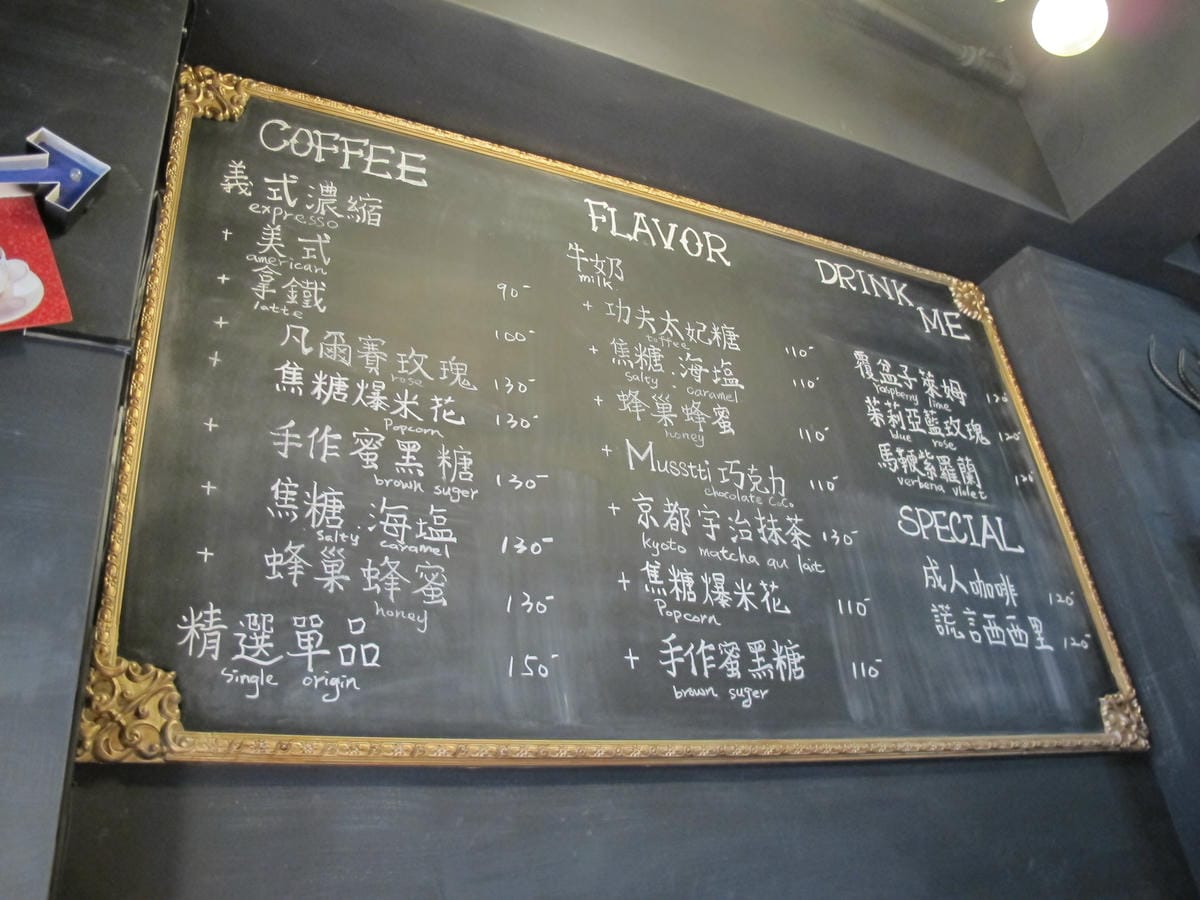 COFFEE
義式濃縮
expresso
+ 美式
american
90-
+ 拿鐵
latte
100-
+ 凡爾賽玫瑰
rose
130-
+ 焦糖爆米花
Popcorn
130-
+ 手作蜜黑糖
brown suger
130-
+ 焦糖.海塩
salty caramel
130-
+ 蜂巢蜂蜜
honey
130-
精選單品
single origin
150-
FLAVOR
牛奶
milk
+ 功夫太妃糖
toffee
110-
+ 焦糖.海塩
salty caramel
110-
+ 蜂巢蜂蜜
honey
110-
+ Musstti 巧克力
chocolate CoCo
110-
+ 京都宇治抹茶
kyoto matcha au lait
130-
+ 焦糖爆米花
Popcorn
110-
+ 手作蜜黑糖
brown suger
110-
DRINK
ME
覆盆子萊姆
raspberry lime
120-
茱莉亞藍玫瑰
blue rose
120-
馬鞭紫羅蘭
verbena violet
120-
SPECIAL
成人咖啡
120-
謊言西西里
120-